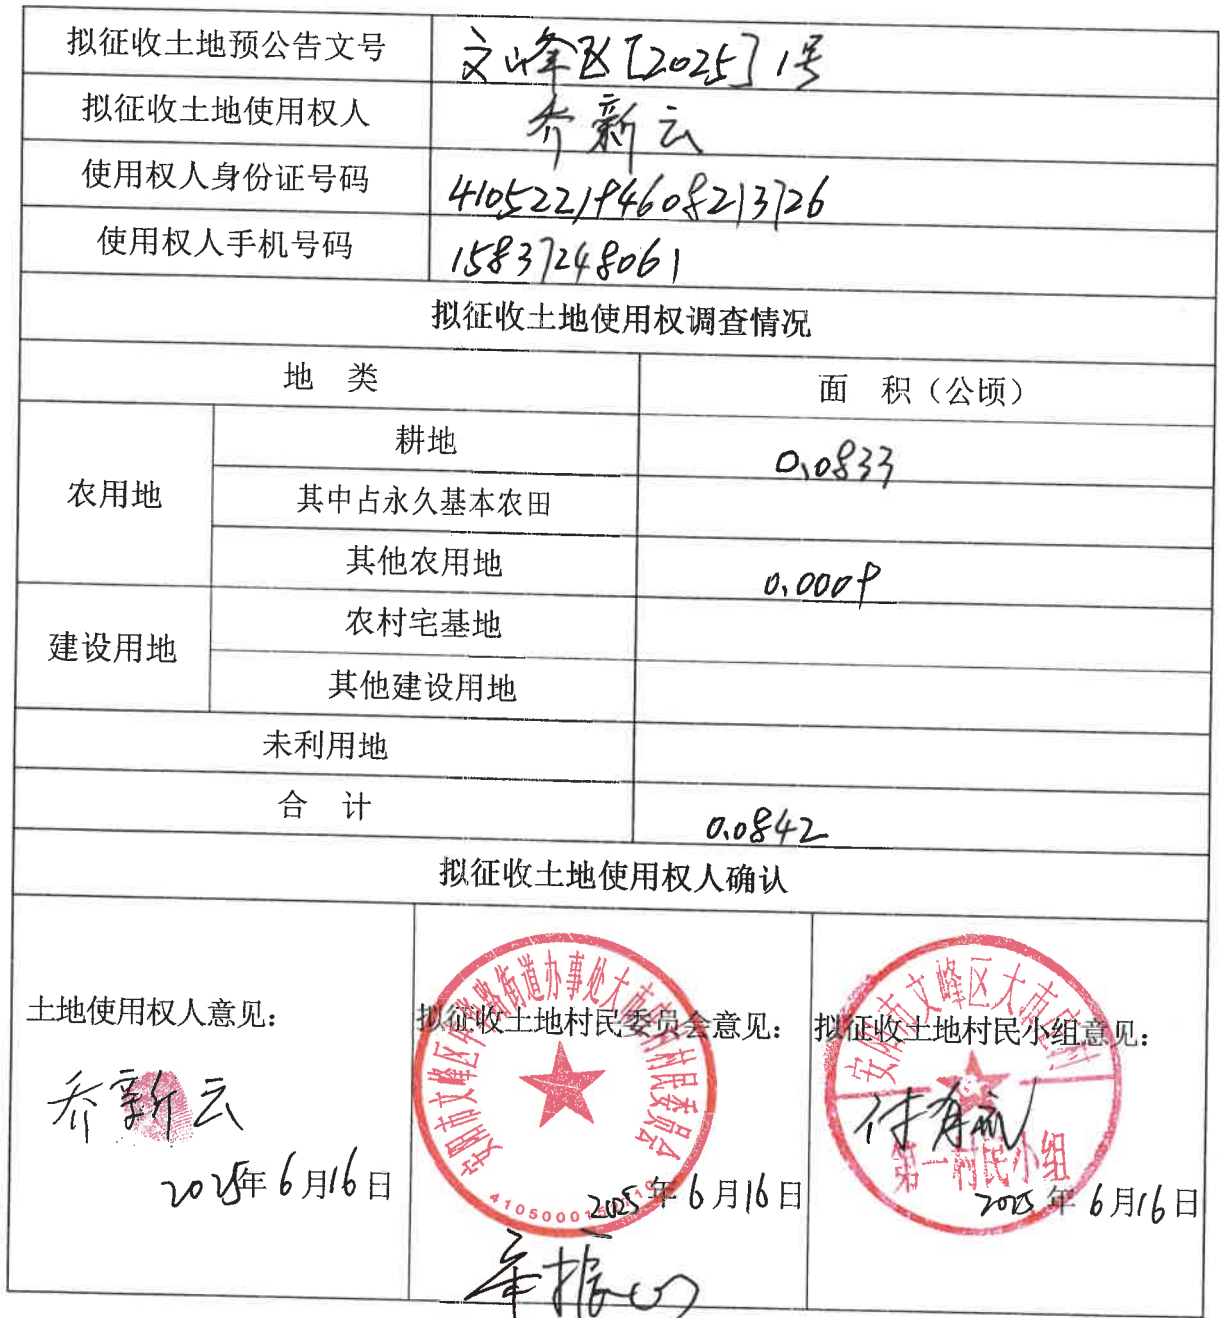 拟征收土地预公告文号 文峰区[2025]1号
拟征收土地使用权人 乔新云
使用权人身份证号码 410522194608213726
使用权人手机号码 15837248061
拟征收土地使用权调查情况
地 类 面 积（公顷）
农用地 耕地 0.0833
其中占永久基本农田
其他农用地 0.0009
建设用地 农村宅基地
其他建设用地
未利用地
合 计 0.0842
拟征收土地使用权人确认
土地使用权人意见：
乔新云
2025年6月16日
拟征收土地村民委员会意见：
2025年6月16日
拟征收土地村民小组意见：
安阳市文峰区大市庄村
第一村民小组
2025年6月16日